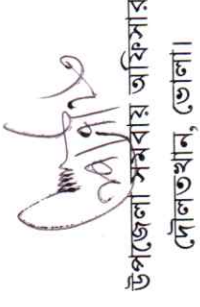 উপজেলা সমবায় অফিসার
দৌলতখান, ভোলা।